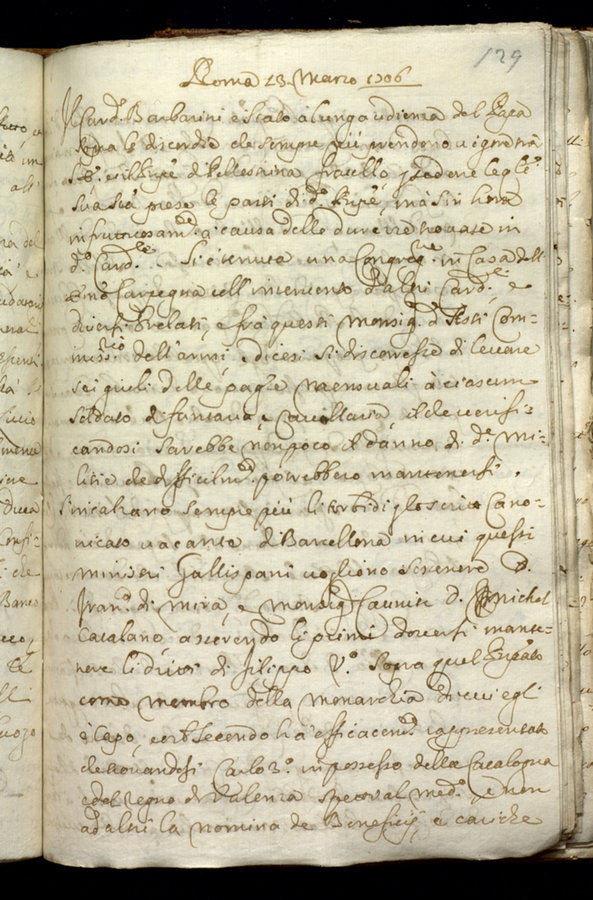 129
Roma 13 Marzo 1706
Il Card. Barbarini è stato a lunga udienza del Papa
sopra le discordie che sempre più prendono vigore trà
S. E. e il Prpe di Pellestrina fratello,
Sua Stà prese le parti di do Prpe, mà sin hora
infruttuosamte a causa delle durezze trovate in
do Cardle. Si è tenuta una Congregne in Casa dell
Emo Carpegna coll' intervento d'altri Cardli e
diversi Prelati, e frà questi Monsig. d'Asti Com-
missrio dell'armi, e dicesi si discorresse di levare
sei giuli delle paghe mensuali à ciascun
soldato di fantaria, e Cavallaria il che verifi-
candosi sarebbe non poco il danno di de Mi-
litie che difficilmte potrebbero mantenersi.
Si riscaldano sempre più li torbidi
nicato vacante di Barcellona in cui questi
ministri Gallispani vogliono sostenere D.
Fran. di Mira, e Monsig. Caunitz D. Michel
Catalano, asserendo li primi doversi mante-
nere li dritti di Filippo Vo sopra quel
come membro della Monarchia di cui egli
è Capo, et il secondo hà efficacemte rappresentato
che trovandosi Carlo 3o in possesso della Catalogna
e del regno di Valenza spetti al medo, e non
ad altri la nomina de Beneficij, e cariche